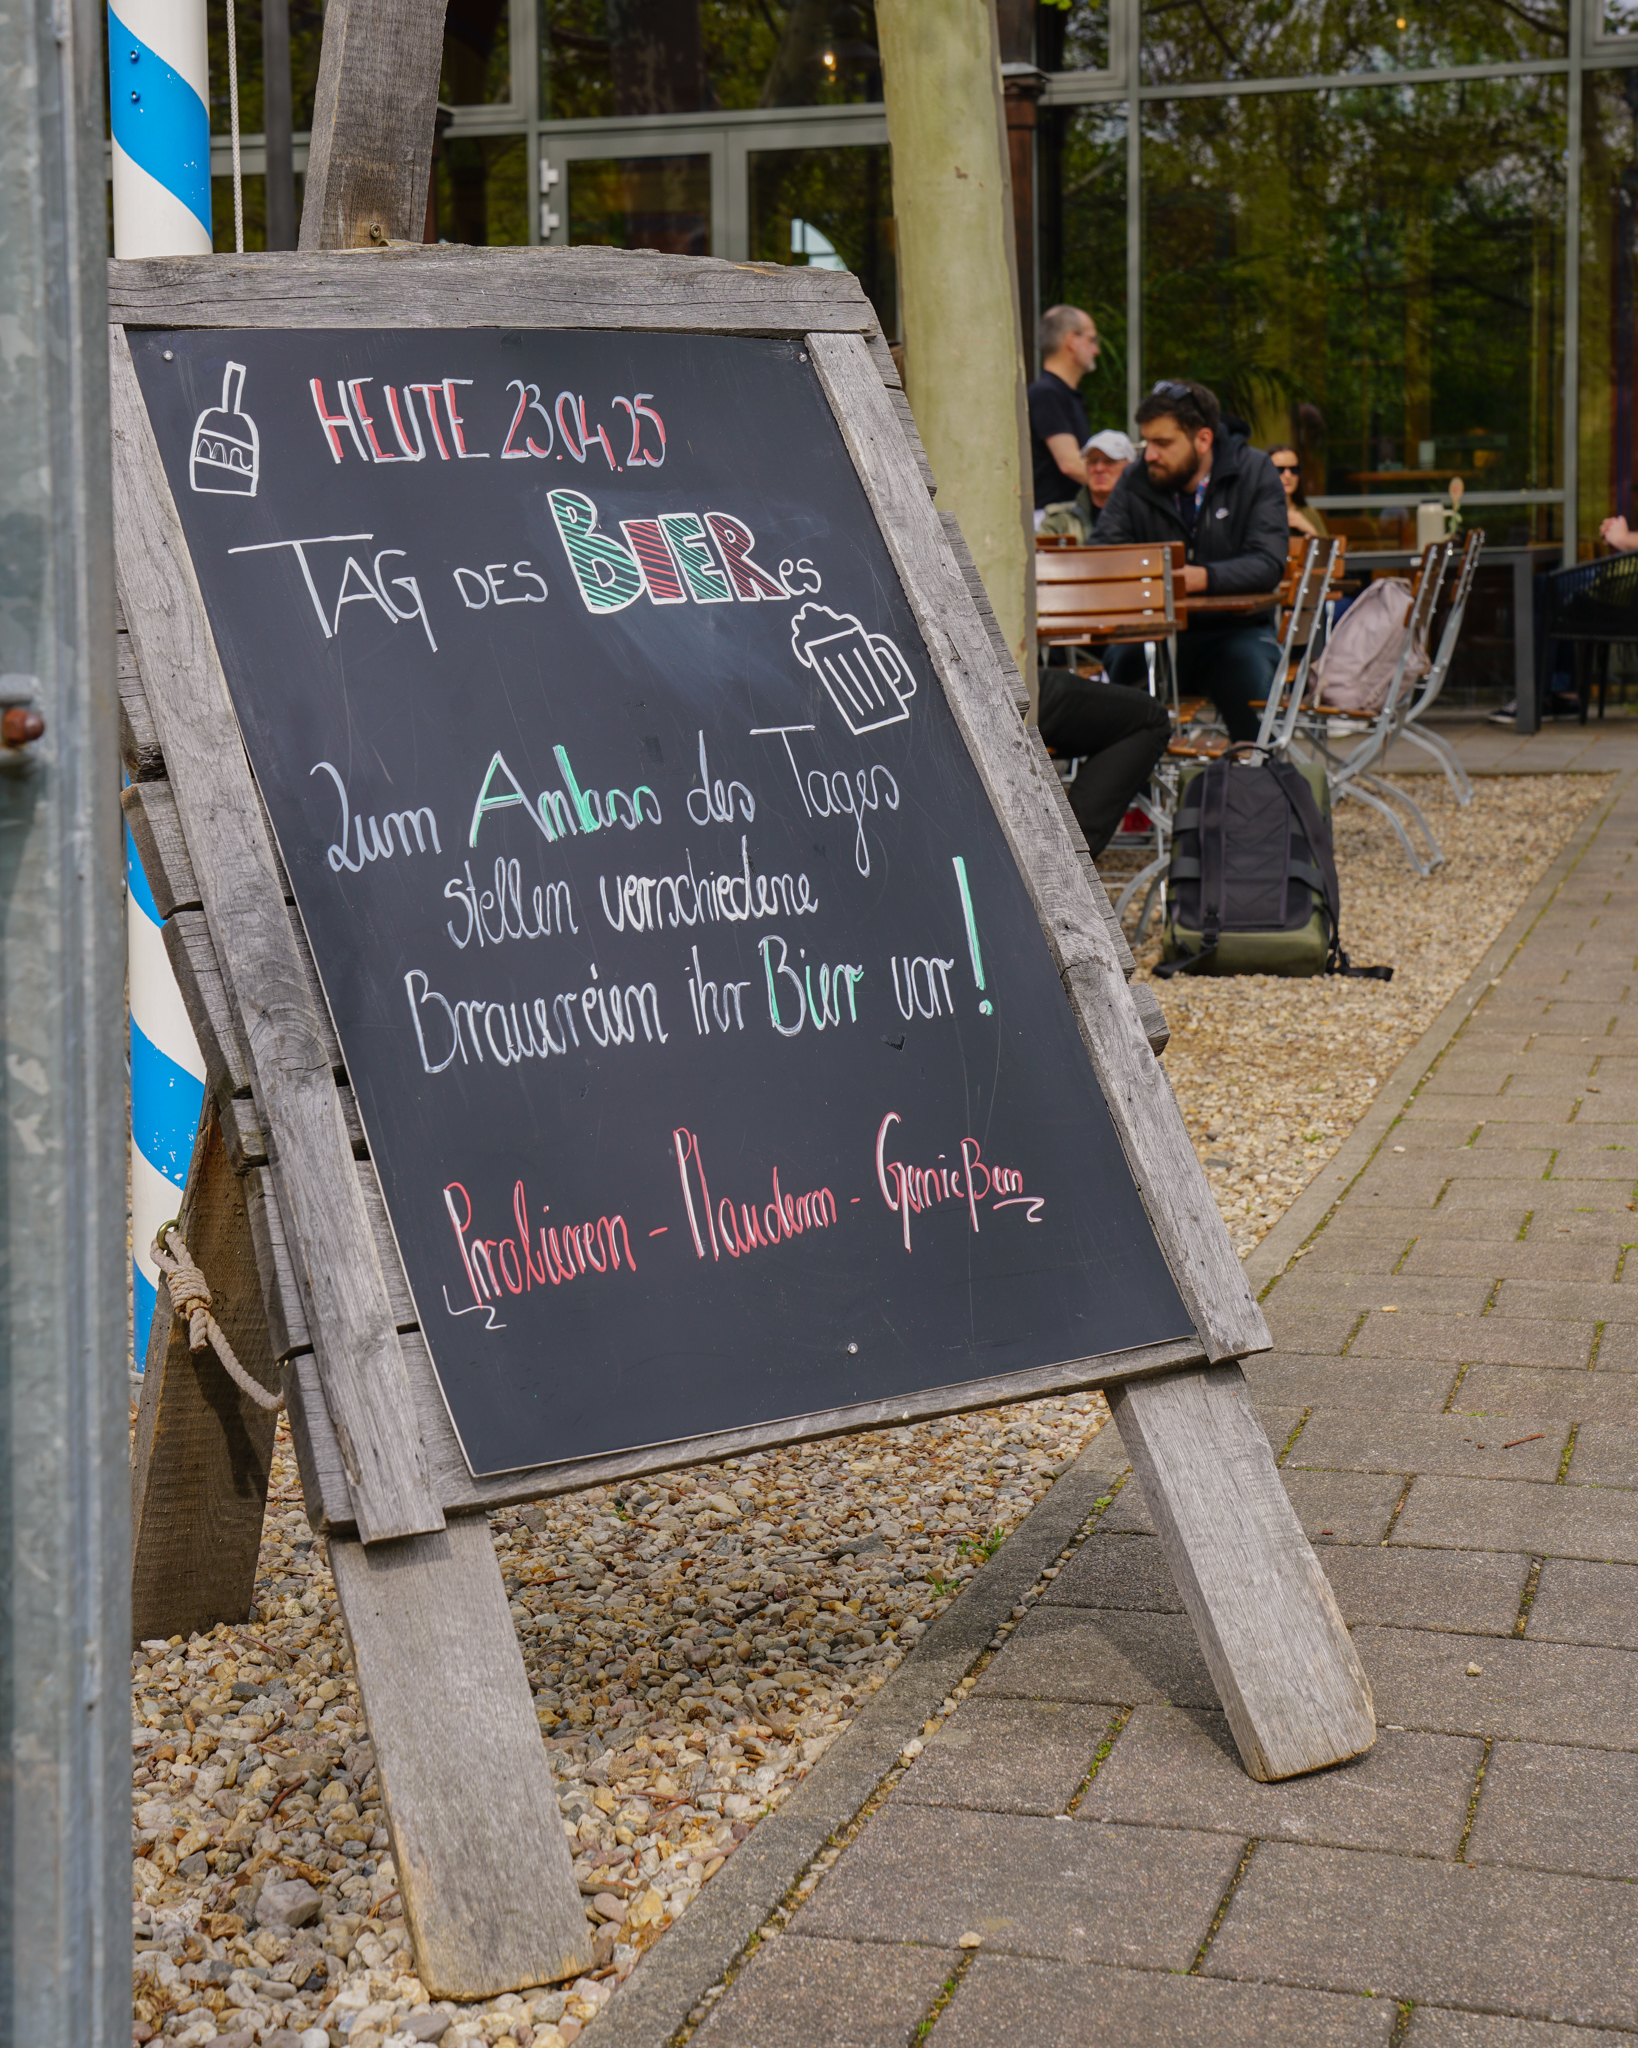 HEUTE 23.04.25
TAG DES BIERes
Zum Anlass des Tages
stellen verschiedene
Brauereien ihr Bier vor!
Probieren - Plaudern - Genießen